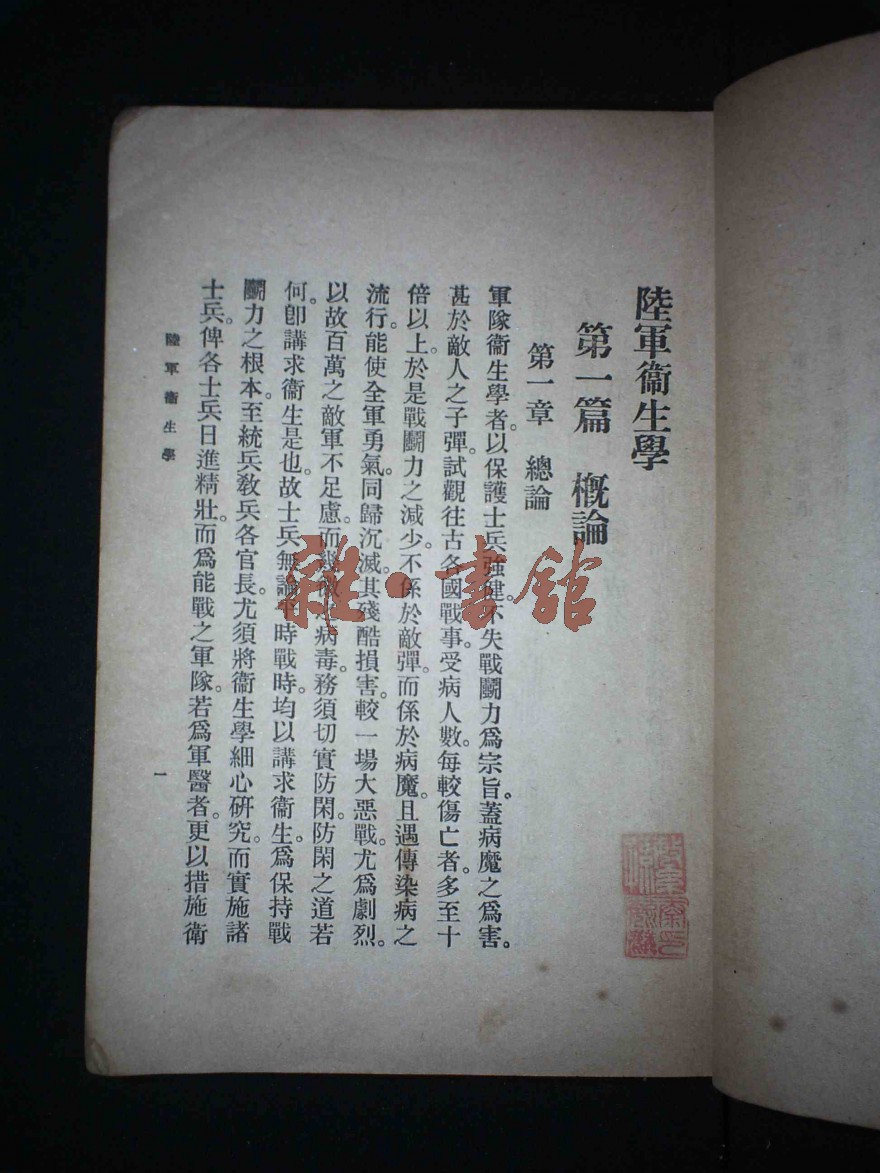 陸軍衞生學
第一篇　概論
第一章　總論
軍隊衞生學者。以保護士兵強健。不失戰鬭力爲宗旨。蓋病魔之爲害。
甚於敵人之子彈。試觀往古各國戰事。受病人數。每較傷亡者。多至十
倍以上。於是戰鬭力之減少。不係於敵彈。而係於病魔。且遇傳染病之
流行。能使全軍勇氣。同歸沉滅。其殘酷損害。較一場大惡戰。尤爲劇烈。
以故百萬之敵軍不足慮。而病毒。務須切實防閑。防閑之道若
何。卽講求衞生是也。故士兵無論時戰時。均以講求衞生。爲保持戰
鬭力之根本。至統兵敎兵各官長。尤須將衞生學細心硏究。而實施諸
士兵。俾各士兵日進精壯。而爲能戰之軍隊。若爲軍醫者。更以措施衞
陸軍衞生學
一
雜·書館